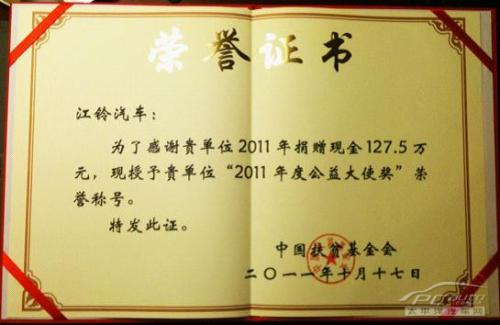 荣誉证书
江铃汽车：
为了感谢贵单位2011年捐赠现金127.5万
元，现授予贵单位“2011年度公益大使奖”荣
誉称号。
特发此证。
中国扶贫基金会
二〇一一年十月十七日
太平洋汽车网